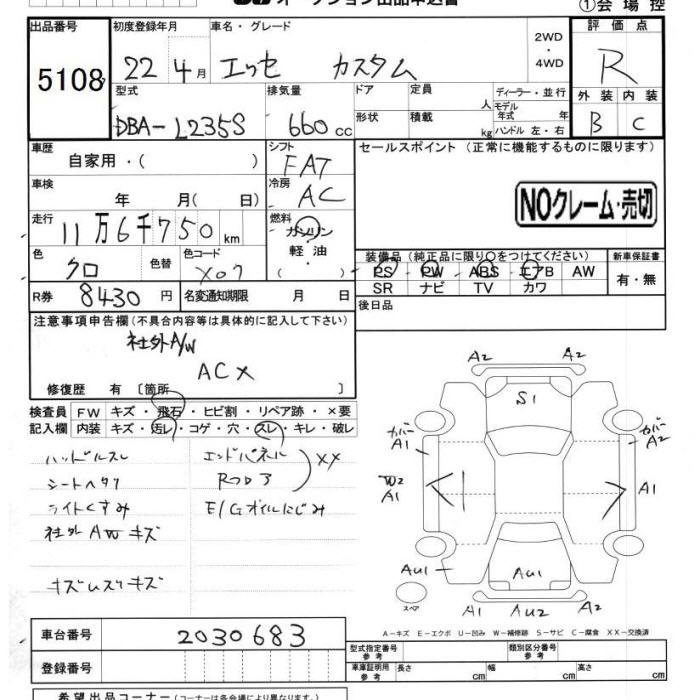 オークション出品申込書
①会場控
出品番号
5108
初度登録年月
22年4月
車名・グレード
エッセ カスタム
2WD・4WD
評価点
R
外装 内装
B C
型式
DBA-L235S
排気量
660cc
ドア
形状
定員 人
積載 kg
ディーラー・並行
モデル年式 年
ハンドル 左・右
車歴
自家用・( )
シフト
FAT
セールスポイント (正常に機能するものに限ります)
NOクレーム・売切
車検
年 月( 日)
冷房
AC
走行
11万6千750km
燃料
ガソリン
軽・油
( )
色
クロ
色替
色コード
X07
装備品 (純正品に限り○をつけてください)
PS PW ABS エアB AW
SR ナビ TV カワ
新車保証書
有・無
R券 8430円
名変通知期限 月 日
後日品
注意事項申告欄 (不具合内容等は具体的に記入して下さい)
社外A/W
AC×
修復歴 有 〔箇所 〕
検査員記入欄
FW キズ・飛石・ヒビ割・リペア跡・×要
内装 キズ・汚レ・コゲ・穴・スレ・キレ・破レ
ハンドルスレ
シートヘタリ
ライトくすみ
社外AWキズ
キズムスリキズ
エンドパネル
Rフロア
XX
E/Gオイルにじみ
A2 A2
S1
カバーA1
カバーA2
A1
A1
AU1
AU1
スペア
A1 AU2 A2
A-キズ E-エクボ U-凹み W-補修跡 S-サビ C-腐食 XX-交換済
車台番号
2030683
登録番号
型式指定番号 参考
類別区分番号 参考
車庫証明用 参考
長さ cm
幅 cm
高さ cm
希望出品コーナー (コーナーは各会場により異なります。)